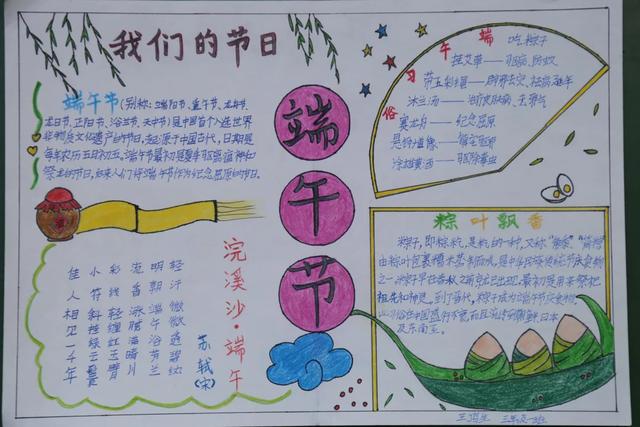 我们的节日
端午节(别称:端阳节、重午节、龙舟节、
龙日节、正阳节、浴兰节、天中节)是中国首个入选世界
非物质文化遗产的节日,起源于中国古代,日期是
每年农历五月初五。端午节最初是夏季驱瘟神和
祭龙的节日,后来人们将端午节作为纪念屈原的节日。
端午节
端午习俗
吃粽子
挂艾草——驱病、防蚊
带五彩绳——
沐兰汤——治疗皮肤病、去邪气
赛龙舟——纪念屈原
涂雄黄酒——
浣溪沙·端午
苏轼(宋)
轻汗微微透碧纨
明朝端午浴芳兰
流香涨腻满晴川
彩线轻缠红玉臂
小符斜挂绿云鬟
佳人相见一千年
粽叶飘香
粽子,即粽籺,是籺的一种,又称
由粽叶包裹糯米蒸制而成,是中华民族传统节庆食物
之一。粽子早在春秋之前就已出现,最初是用来祭祀
祖先和神灵。到了晋代,粽子成为端午节庆食物。
日本
及东南亚。
三年级一班